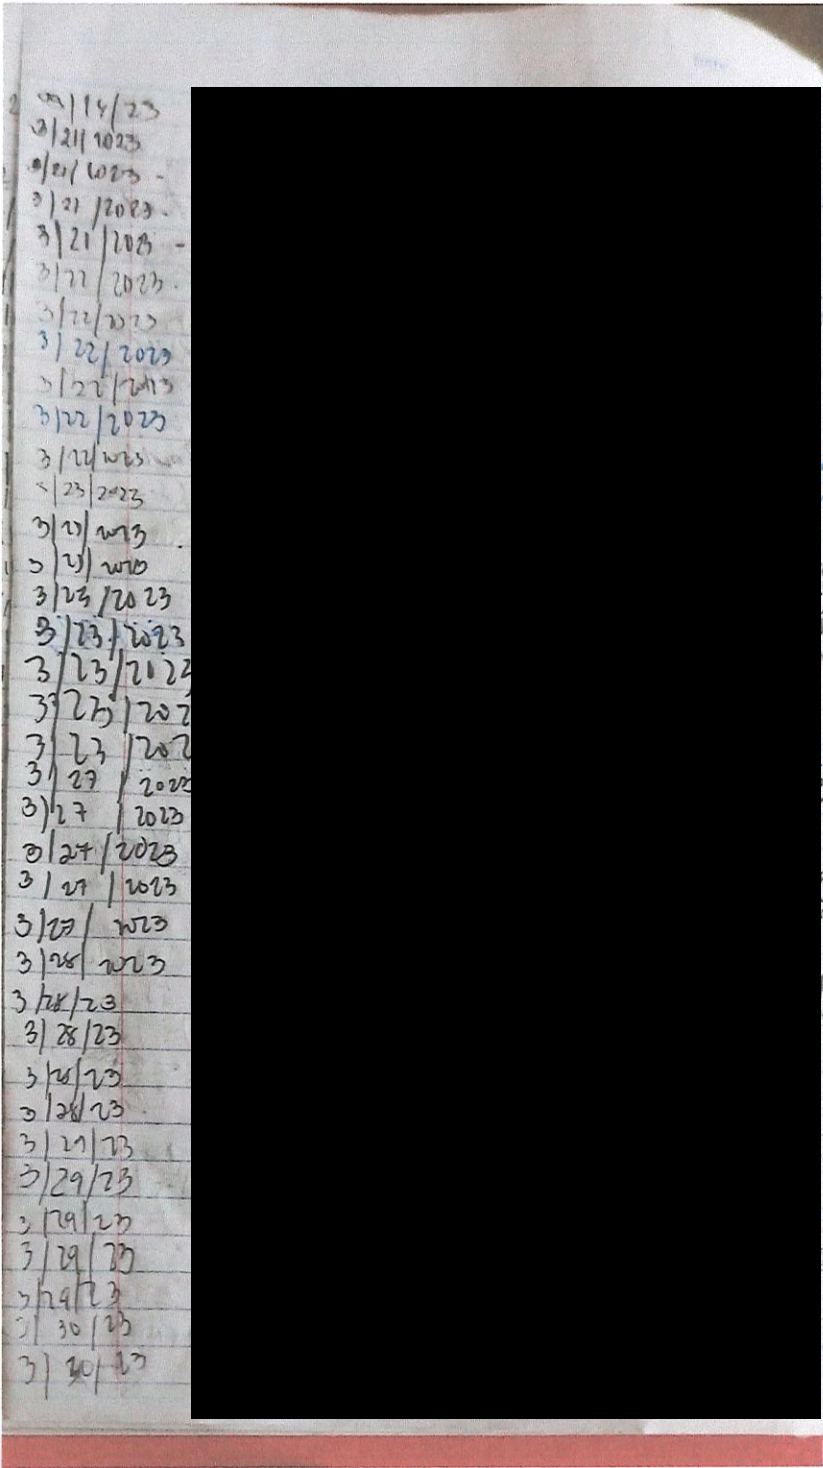 3/14/23
3/21/2023
3/21/2023 -
3/21/2023 -
3/21/2023 -
3/22/2023 -
3/22/2023
3/22/2023
3/22/2023
3/22/2023
3/22/2023
/23/2023
3/23/2023
3/23/2023
3/23/2023
3/23/2023
3/23/202
3/23/202
3/23/202
3/27/2023
3/27/2023
3/27/2023
3/27/2023
3/27/2023
3/28/2023
3/28/23
3/28/23
3/28/23
3/28/23
3/29/23
3/29/23
3/29/23
3/29/23
3/29/23
3/30/23
3/30/23